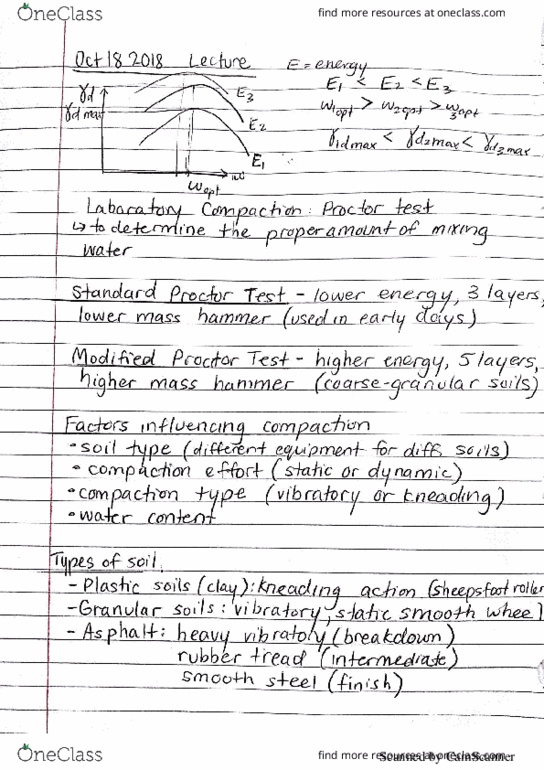 OneClass
find more resources at oneclass.com
Oct 18 2018 Lecture
E = energy
E1 < E2 < E3
w1opt > w2opt > w3opt
γ1dmax < γd2max < γd3max
γd
γd max
E3
E2
E1
w
wopt
Labaratory Compaction: Proctor test
↳ to determine the proper amount of mixing
water
Standard Proctor Test - lower energy, 3 layers,
lower mass hammer (used in early days)
Modified Proctor Test - higher energy, 5 layers,
higher mass hammer (coarse-granular soils)
Factors influencing compaction
• soil type (different equipment for diff. soils)
• compaction effort (static or dynamic)
• compaction type (vibratory or kneading)
• water content
Types of soil
- Plastic soils (clay): kneading action (sheepsfoot roller
- Granular soils: vibratory, static smooth wheel
- Asphalt: heavy vibratoly (breakdown)
rubber tread (intermediate)
smooth steel (finish)
OneClass
find more resources at oneclass.com
Scanned by CamScanner